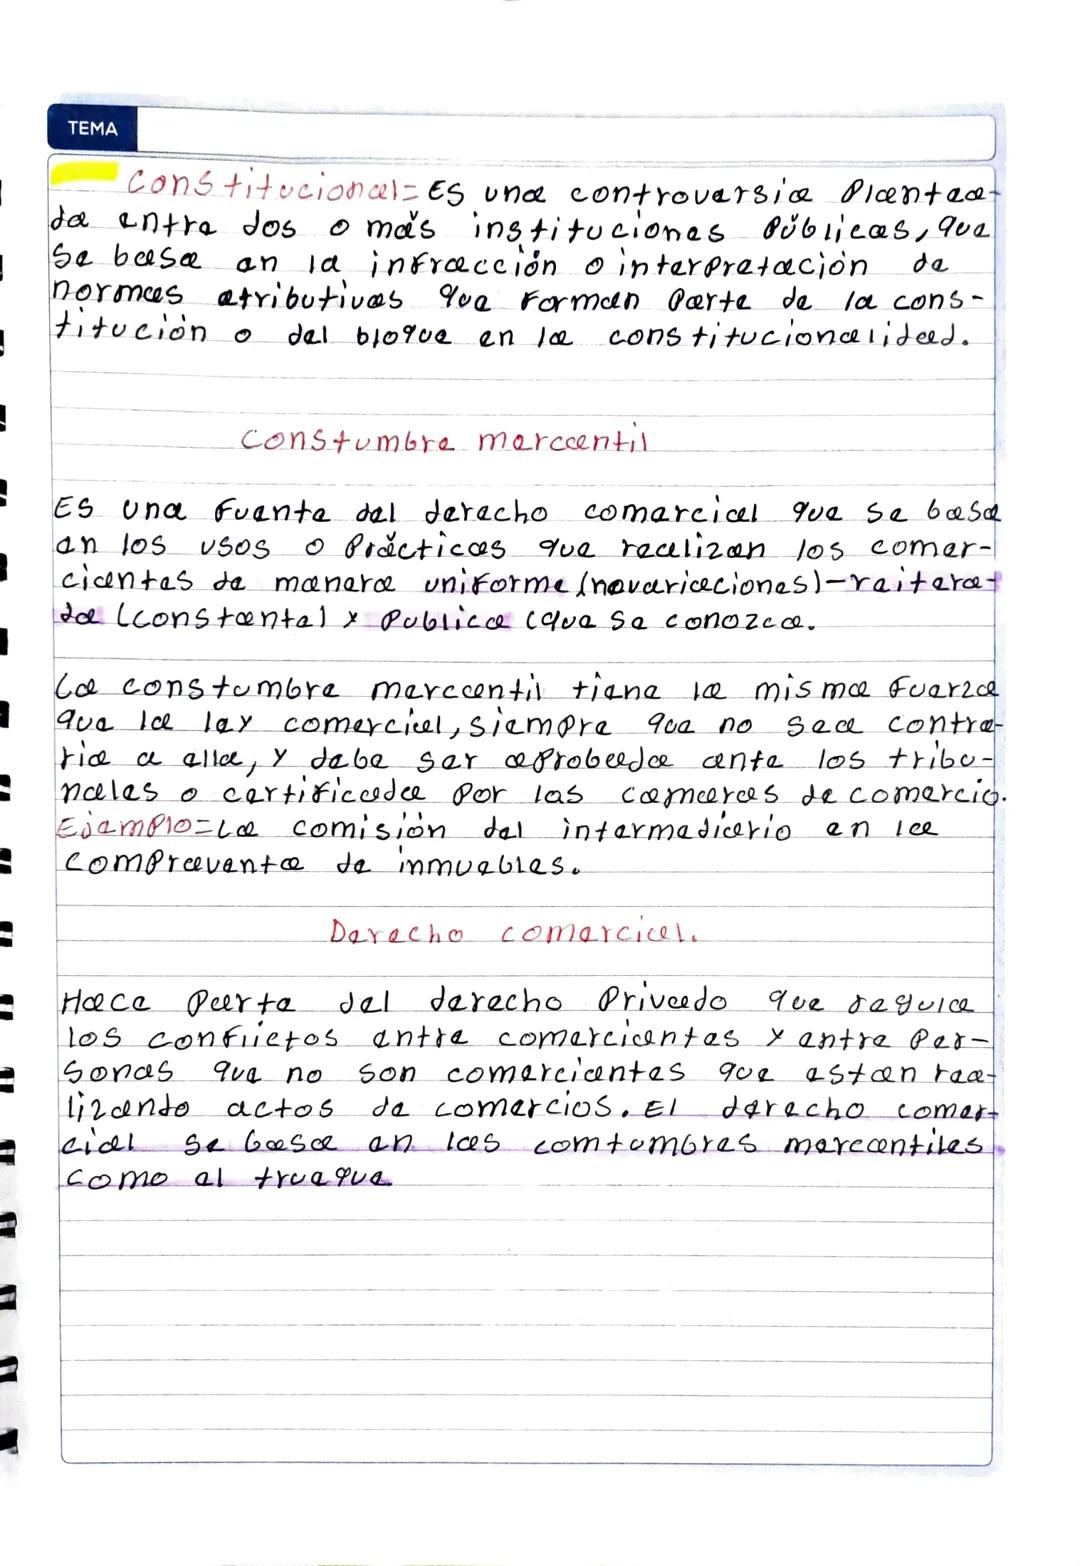 TEMA
Constitucional= Es una controversia Plantea-
da entre dos o más instituciones Públicas, que
se basa en la infracción o interpretación de
normas atributivas que Forman Parte de la cons-
titución o del bloque en la constitucionalidad.
Constumbre mercantil
Es una Fuente del derecho comercial que se basa
en los usos o Prácticas que realizan los comer-
ciantes de manera uniforme (novariaciones)-reitera-
da (constante) y Publica (que se conozca.
La constumbre mercantil tiene la misma Fuerza
que la ley comercial, siempre que no sea contra-
ria a ella, y debe ser aprobada ante los tribu-
nales o certificada Por las camaras de comercio.
Ejemplo= La comisión del intermediario en la
compraventa de inmuebles.
Derecho comercial.
Hace Parte del derecho Privado que regula
los conflictos entre comerciantes y entre Per-
sonas que no son comerciantes que estan rea-
lizando actos de comercios. El derecho comer-
cial se basa en las comtumbres mercantiles
como el trueque